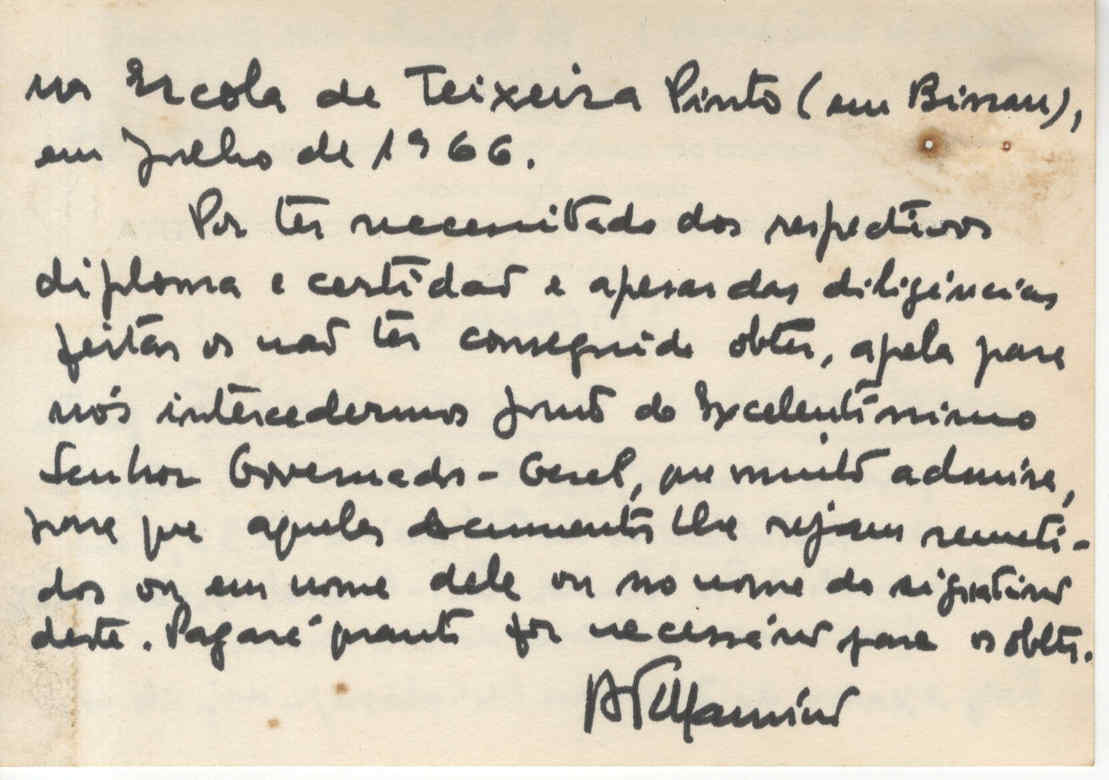 na Escola de Teixeira Pinto (em Bissau),
em Julho de 1966.
Por ter necessitado dos respectivos
diploma e certidão e apesar das diligências
feitas os não ter conseguido obter, apela para
nós intercedermos junto do Excelentíssimo
Senhor Governador-Geral, que muito admira,
para que aqueles documentos lhe sejam remeti-
dos ou em nome dele ou no nome do signatário
deste. Pagaré quanto for necessário para os obter.